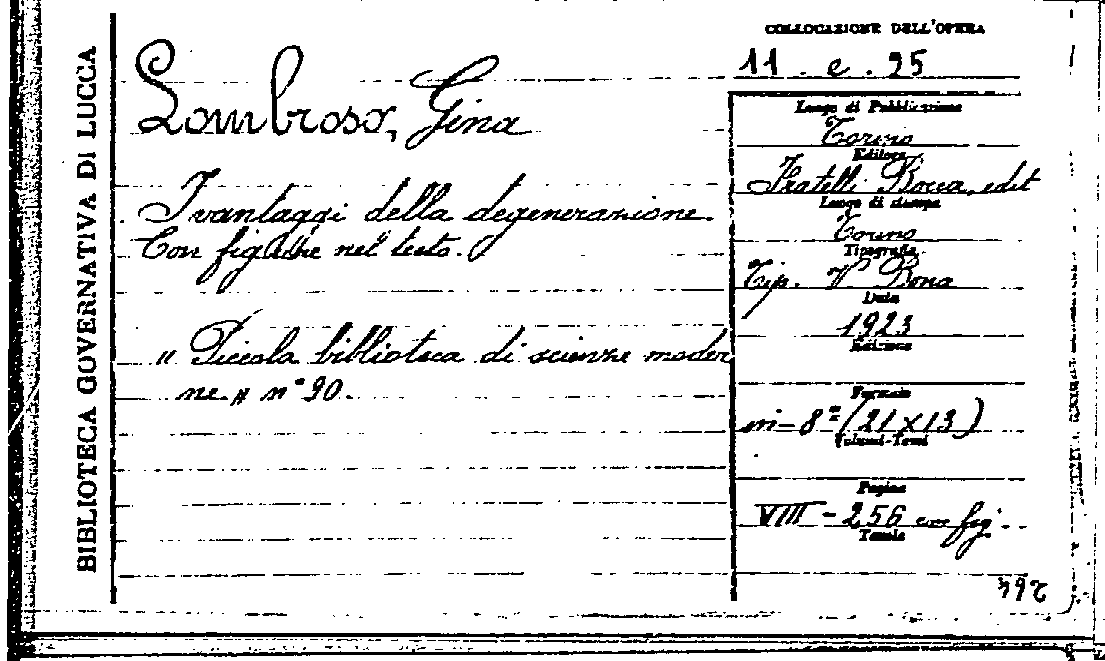 BIBLIOTECA GOVERNATIVA DI LUCCA
Lombroso, Gina
I vantaggi della degenerazione.
Con figure nel testo.
" Piccola biblioteca di scienze moder
ne " n° 90.
COLLOCAZIONE DELL'OPERA
11 . e . 95
Luogo di Pubblicazione
Torino
Editore
Fratelli Bocca, edit
Luogo di stampa
Torino
Tipografia
Tip. V. Bona
Data
1923
Edizione
Formato
in-8° (21x13)
Volumi-Tomi
Pagine
VIII - 256 con fig.
Tavole
264